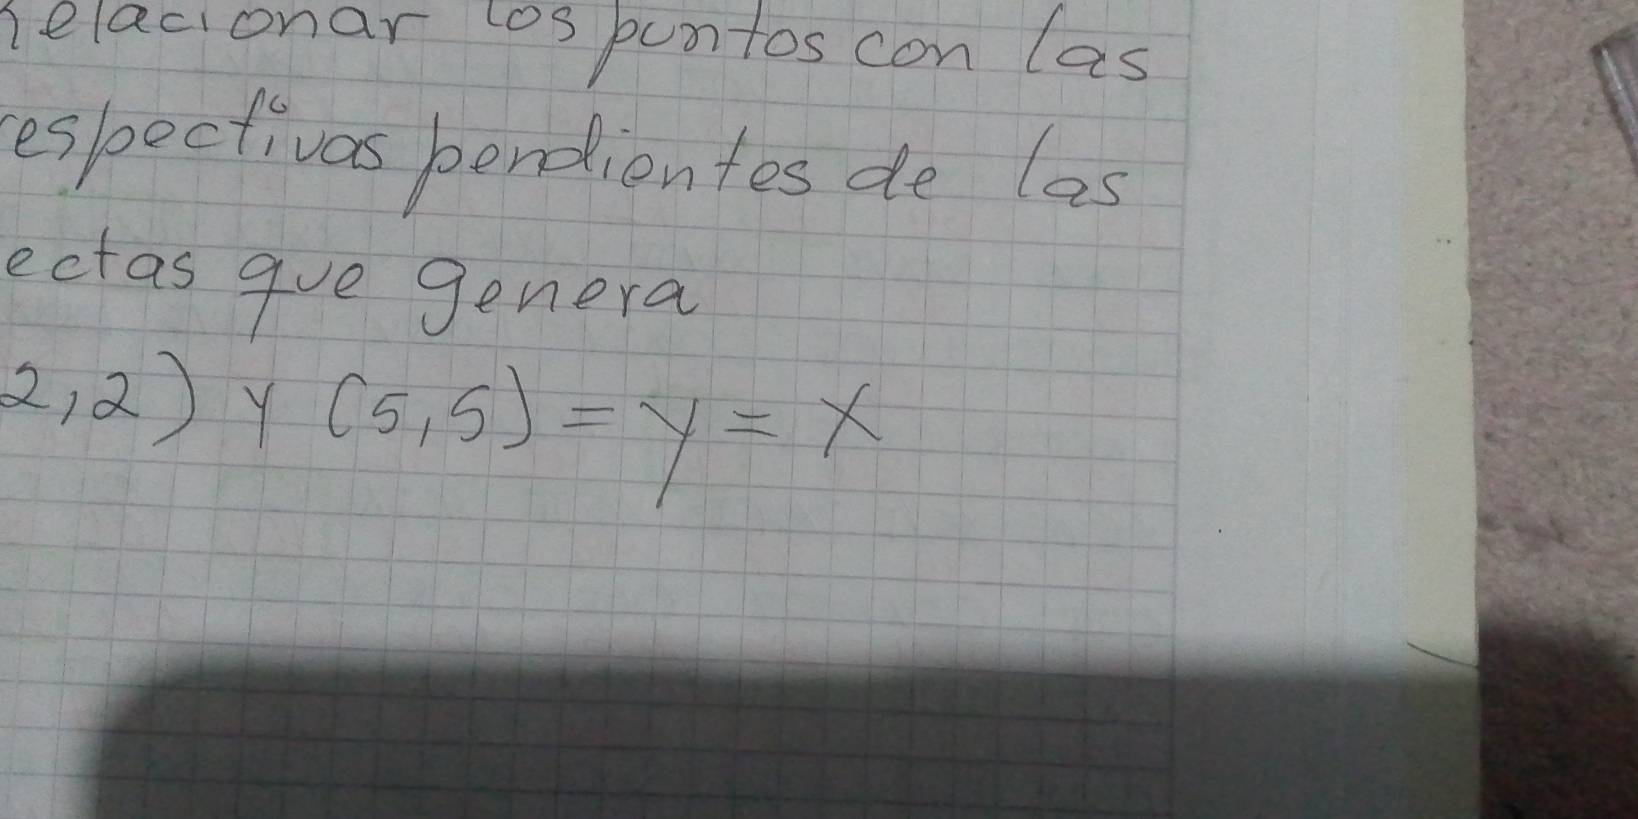 Relacionar los puntos con las
respectivas pendientes de las
ectas que genera
2,2) y (5,5) = y = x